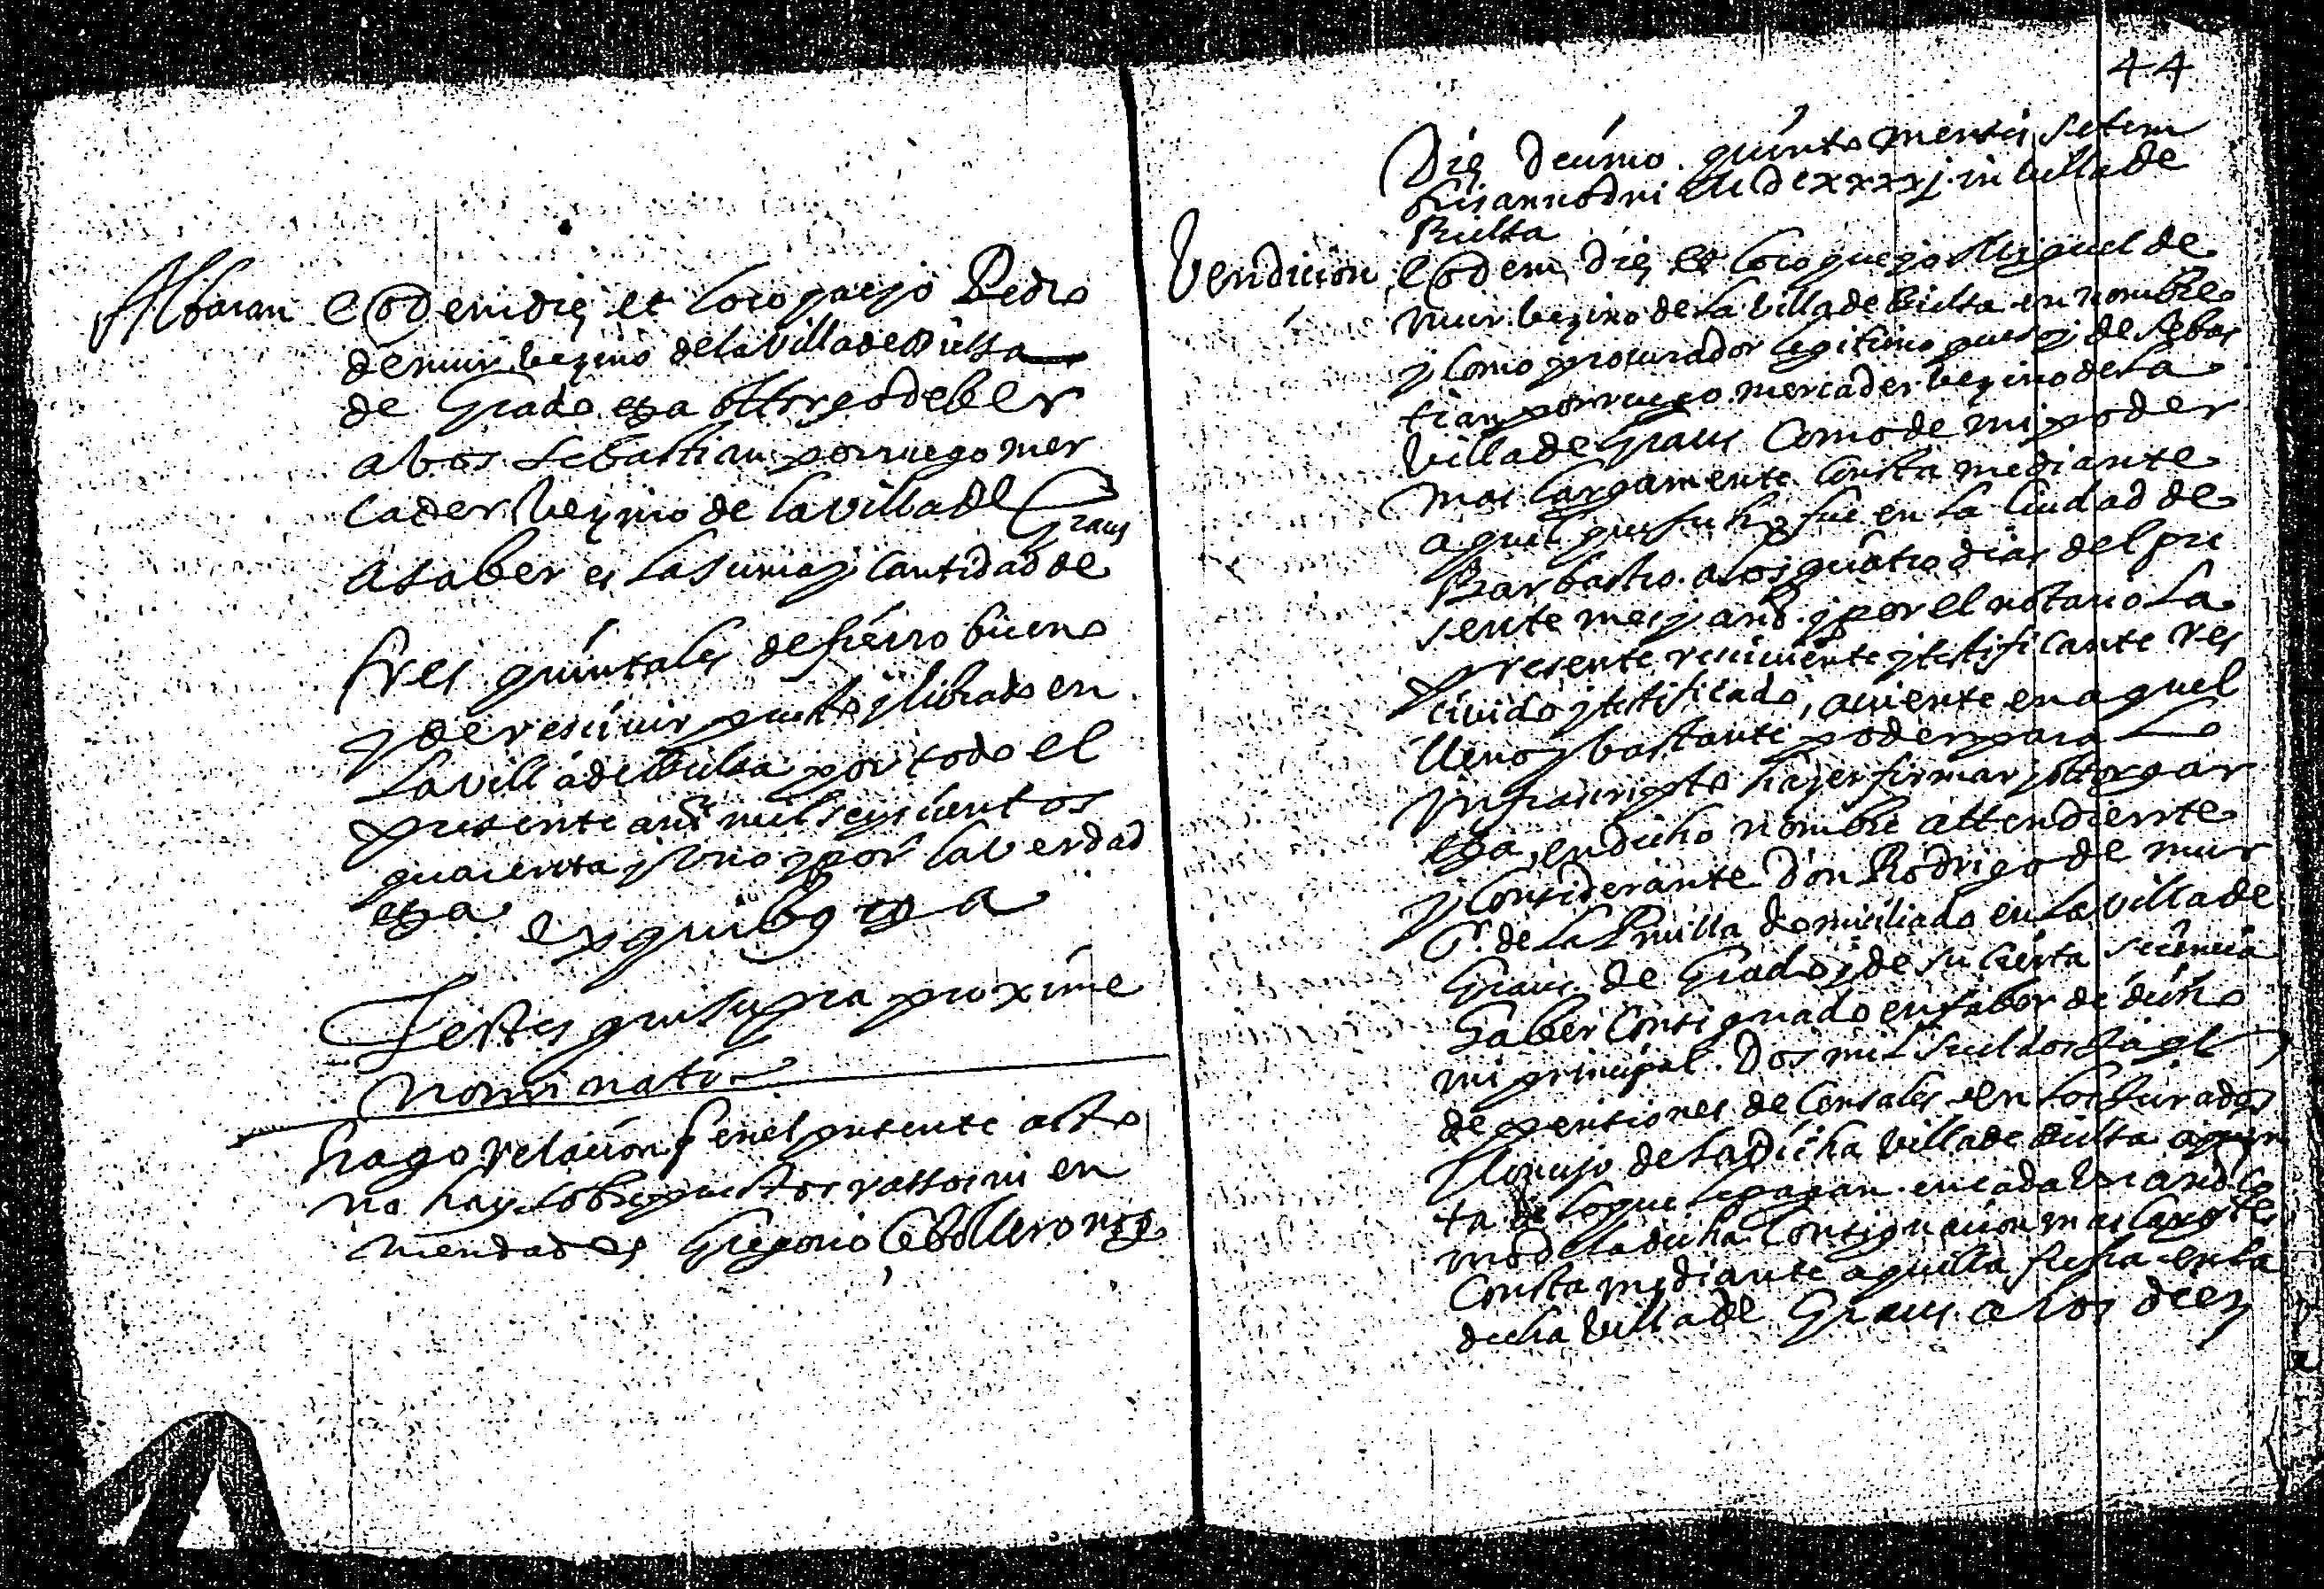 Albaran Eodem die et loco que yo Pedro
de mur vezino de la villa de Bielsa
de Grado etza ottorgo deber
a bos Sebastian porruego mer
cader vezino de la villa de Graus
a saber es la suma y cantidad de
tres quintales de fierro bueno
y de rescivir puesto y librado en
la villa de Bielsa por todo el
presente añó mil seyscientos
quarenta y uno y por la verdad
etza ex quibus etza
Testes qui supra proxime
nominati
hago relacion q en el presente acto
no hay sobrepuestos rassos ni en
mendados Gregorio Cebollero noto
44
Die decimo quinto mensis Setem
bris anno dni MDCxxxxj in villa de
Bielsa
Vendicion Eodem die et loco que yo Miguel de
mur vezino de la villa de Bielsa en nombre
y como procurador legitimo que soy de Sebas
tian porruego mercader vezino de la
villa de Graus como de mi poder
mas largamente consta mediante
aquel que fecho fue en la Ciudad de
Barbastro a los quatro dias del pre
sente mes y año y por el notario la
presente resciviente y testificante res
civido y testificado, aviente en aquel
lleno y bastante poder para lo
infrascripto hazer firmar y ottorgar
etza, en dicho nombre attendiente
y considerante don Rodrigo de mur
Sr. de la Pinilla domiciliado en la villa de
Graus de Grado y de su cierta sciencia
haber consignado en fabor de dicho
mi principal. Dos mil sueldos Jaqs
de pensiones de censales en los Jurados
y Concejo de la dicha villa de Bielsa a quen
ta de lo que le pagan en cada un año co
mo de la dicha consignacion mas largte
consta mediante aquella fecha en la
dicha villa de Graus a los diez